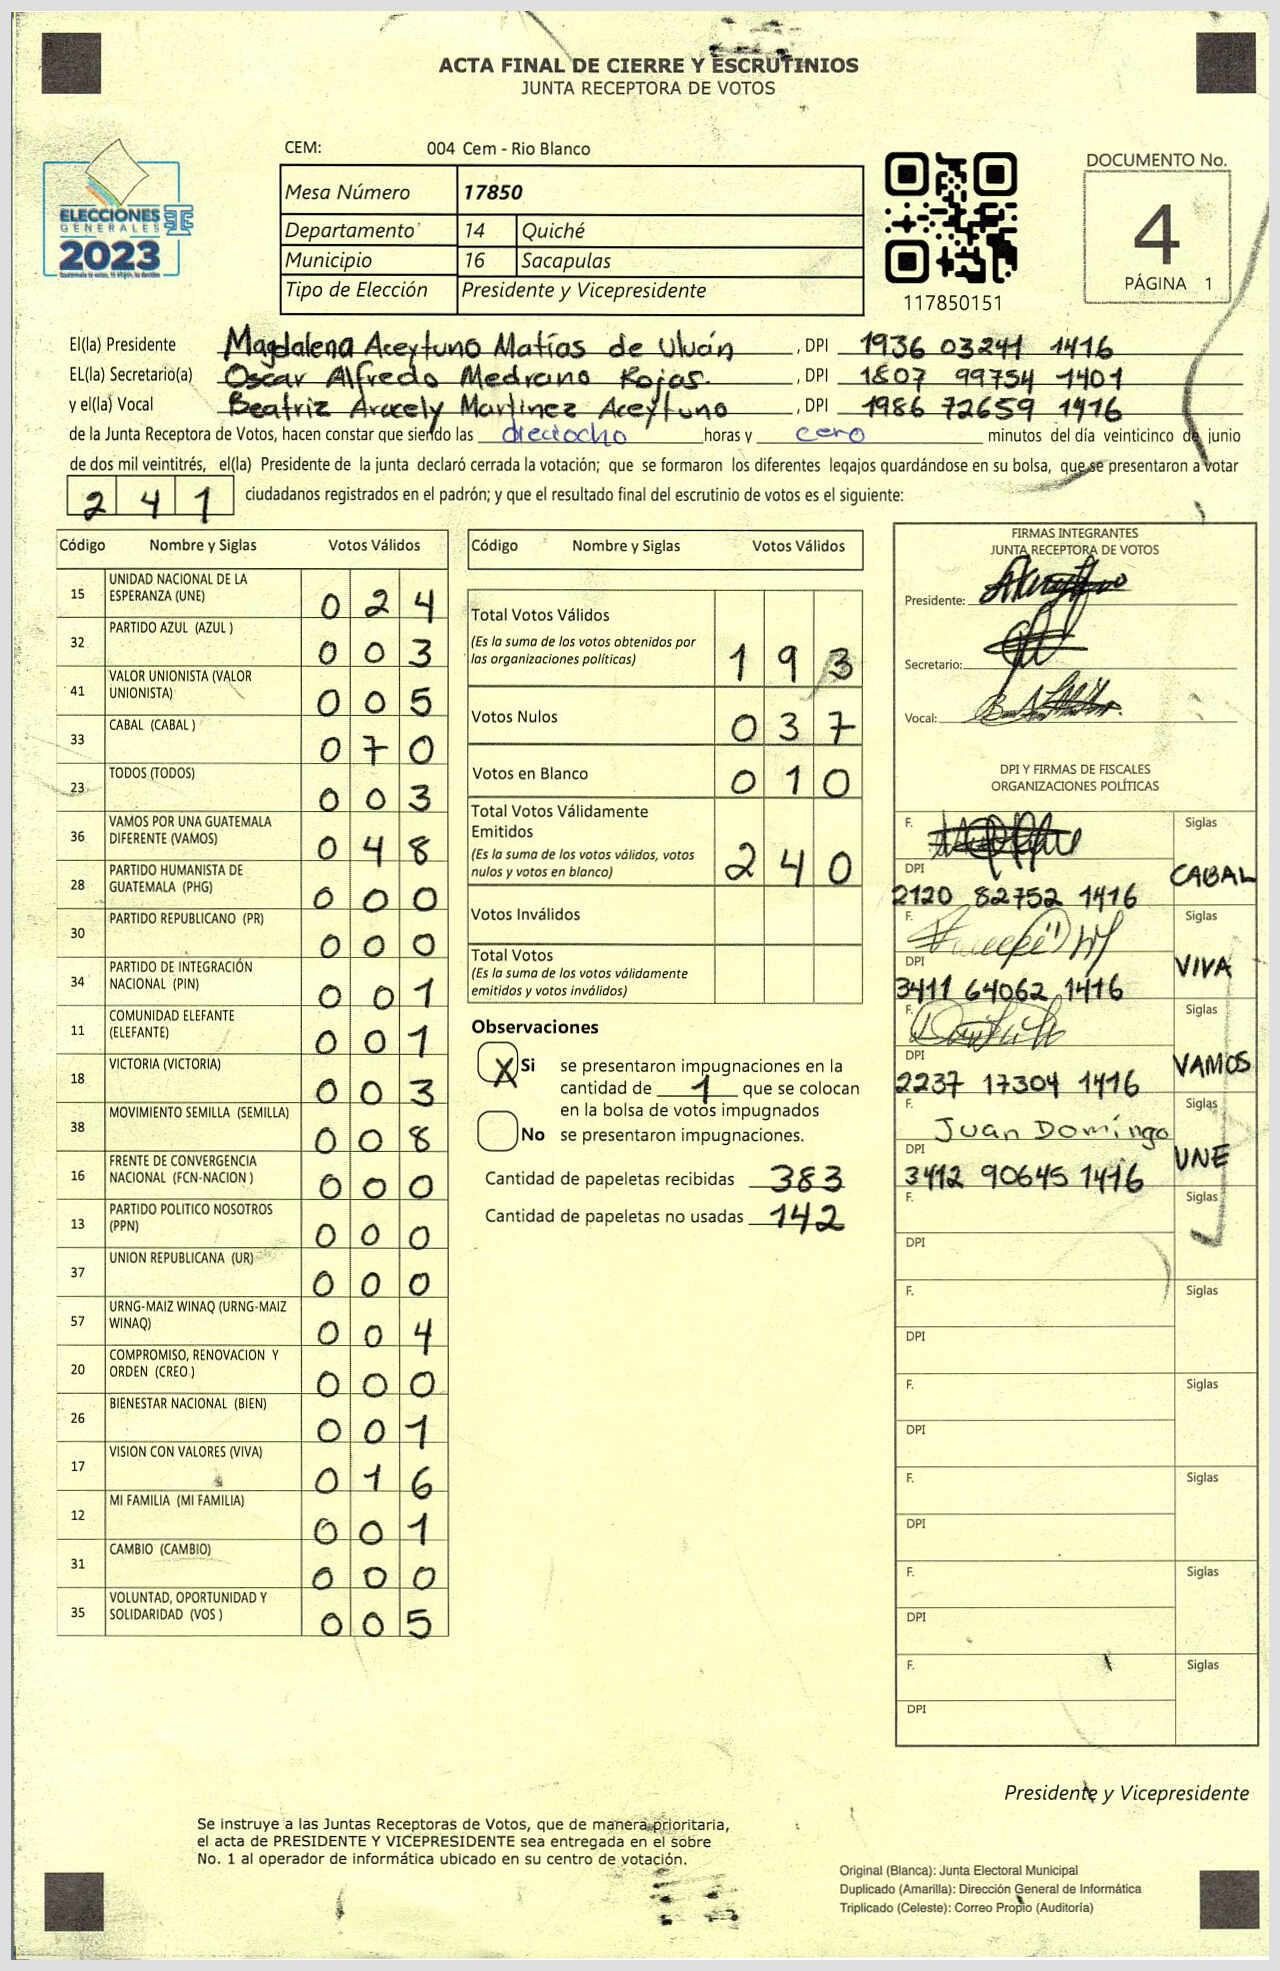 ACTA FINAL DE CIERRE Y ESCRUTINIOS
JUNTA RECEPTORA DE VOTOS
CEM: 004 Cem - Rio Blanco
Mesa Número 17850
Departamento 14 Quiché
Municipio 16 Sacapulas
Tipo de Elección Presidente y Vicepresidente
ELECCIONES
GENERALES
2023
117850151
DOCUMENTO No.
4
PÁGINA 1
El(la) Presidente Magdalena Aceytuno Matías de Uluán , DPI 1936 03241 1416
EL(la) Secretario(a) Oscar Alfredo Medrano Rojas. , DPI 1807 99754 1401
y el(la) Vocal Beatriz Aracely Martinez Aceytuno , DPI 1986 72659 1416
de la Junta Receptora de Votos, hacen constar que siendo las dieciocho horas y cero minutos del día veinticinco de junio
de dos mil veintitrés, el(la) Presidente de la junta declaró cerrada la votación; que se formaron los diferentes legajos guardándose en su bolsa, que se presentaron a votar
241 ciudadanos registrados en el padrón; y que el resultado final del escrutinio de votos es el siguiente:
Código Nombre y Siglas Votos Válidos
15 UNIDAD NACIONAL DE LA ESPERANZA (UNE) 0 2 4
32 PARTIDO AZUL (AZUL ) 0 0 3
41 VALOR UNIONISTA (VALOR UNIONISTA) 0 0 5
33 CABAL (CABAL ) 0 7 0
23 TODOS (TODOS) 0 0 3
36 VAMOS POR UNA GUATEMALA DIFERENTE (VAMOS) 0 4 8
28 PARTIDO HUMANISTA DE GUATEMALA (PHG) 0 0 0
30 PARTIDO REPUBLICANO (PR) 0 0 0
34 PARTIDO DE INTEGRACIÓN NACIONAL (PIN) 0 0 1
11 COMUNIDAD ELEFANTE (ELEFANTE) 0 0 1
18 VICTORIA (VICTORIA) 0 0 3
38 MOVIMIENTO SEMILLA (SEMILLA) 0 0 8
16 FRENTE DE CONVERGENCIA NACIONAL (FCN-NACION ) 0 0 0
13 PARTIDO POLITICO NOSOTROS (PPN) 0 0 0
37 UNION REPUBLICANA (UR) 0 0 0
57 URNG-MAIZ WINAQ (URNG-MAIZ WINAQ) 0 0 4
20 COMPROMISO, RENOVACION Y ORDEN (CREO ) 0 0 0
26 BIENESTAR NACIONAL (BIEN) 0 0 1
17 VISION CON VALORES (VIVA) 0 1 6
12 MI FAMILIA (MI FAMILIA) 0 0 1
31 CAMBIO (CAMBIO) 0 0 0
35 VOLUNTAD, OPORTUNIDAD Y SOLIDARIDAD (VOS ) 0 0 5
Código Nombre y Siglas Votos Válidos
Total Votos Válidos
(Es la suma de los votos obtenidos por
las organizaciones políticas) 1 9 3
Votos Nulos 0 3 7
Votos en Blanco 0 1 0
Total Votos Válidamente
Emitidos
(Es la suma de los votos válidos, votos
nulos y votos en blanco) 2 4 0
Votos Inválidos
Total Votos
(Es la suma de los votos válidamente
emitidos y votos inválidos)
Observaciones
X Si se presentaron impugnaciones en la
cantidad de 1 que se colocan
en la bolsa de votos impugnados
No se presentaron impugnaciones.
Cantidad de papeletas recibidas 383
Cantidad de papeletas no usadas 142
FIRMAS INTEGRANTES
JUNTA RECEPTORA DE VOTOS
Presidente:
Secretario:
Vocal:
DPI Y FIRMAS DE FISCALES
ORGANIZACIONES POLÍTICAS
F. Siglas
DPI CABAL
2120 82752 1416
F. Siglas
DPI VIVA
3411 64062 1416
F. Siglas
DPI VAMOS
2237 17304 1416
F. Juan Domingo Siglas
DPI UNE
3412 90645 1416
F. Siglas
DPI
F. Siglas
DPI
F. Siglas
DPI
F. Siglas
DPI
F. Siglas
DPI
F. Siglas
DPI
Presidente y Vicepresidente
Se instruye a las Juntas Receptoras de Votos, que de manera prioritaria,
el acta de PRESIDENTE Y VICEPRESIDENTE sea entregada en el sobre
No. 1 al operador de informática ubicado en su centro de votación.
Original (Blanca): Junta Electoral Municipal
Duplicado (Amarilla): Dirección General de Informática
Triplicado (Celeste): Correo Propio (Auditoría)